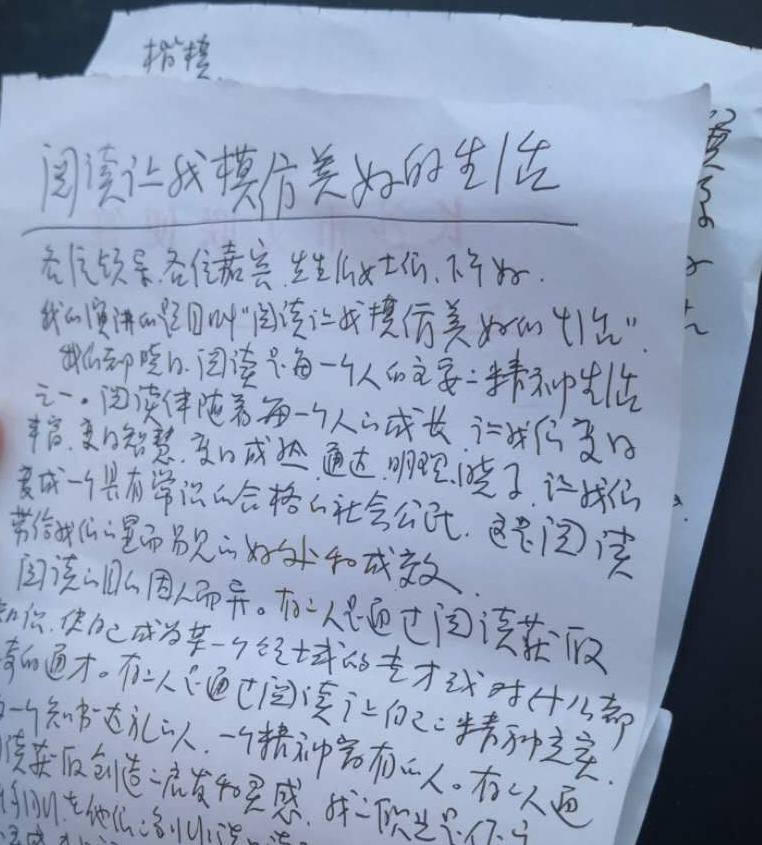 楷模
阅读让我模仿美好的生活
各位领导、各位嘉宾、先生们女士们、下午好、
我的演讲的题目叫“阅读让我模仿美好的生活”、
我们都晓得、阅读是每一个人的主要的精神生活
之一。阅读伴随着每一个人的成长、让我们变得
丰富、变得智慧、变得成熟、通达、明理、晓了、让我们
变成一个具有常识的合格的社会公民、这是阅读
带给我们的显而易见的好处和成效、
阅读的目的因人而异。有的人是通过阅读获取
知识、使自己成为某一个领域的专才或对什么都
的通才。有的人是通过阅读让自己的精神充实、
一个知书达礼的人、一个精神富有的人。有的人通
读获取创造的启发和灵感、我